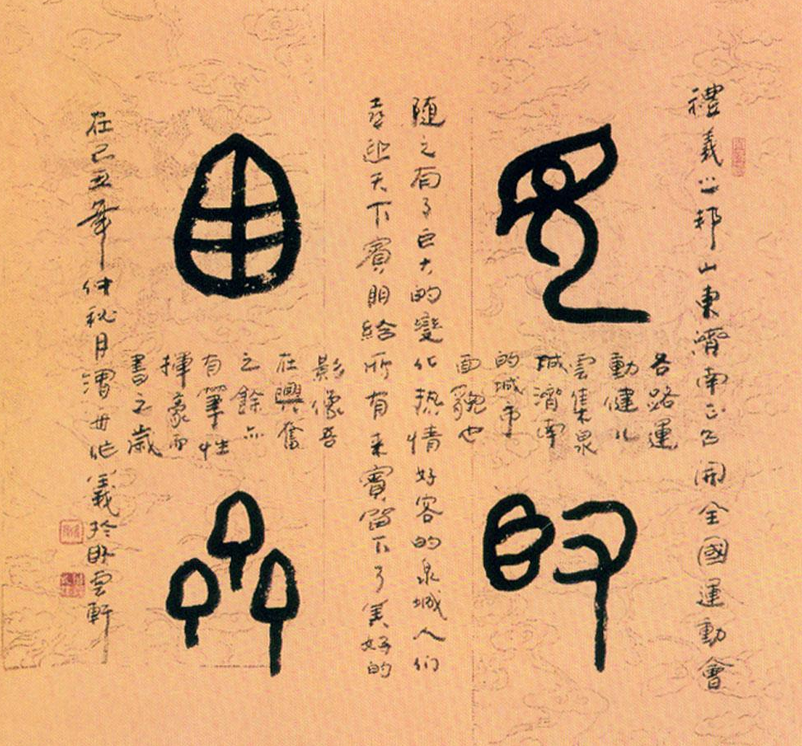 禮義之邦山東濟南正召開全國運動會
各路運
動健儿
雲集泉
城濟南
的城市
面貌也
隨之有了巨大的變化热情好客的泉城人们
喜迎天下賓朋給所有来賓留下了美好的
影像吾
在興奮
之餘亦
有筆性
揮豪而
書之歲
在己丑年仲秋月義於卧雲軒